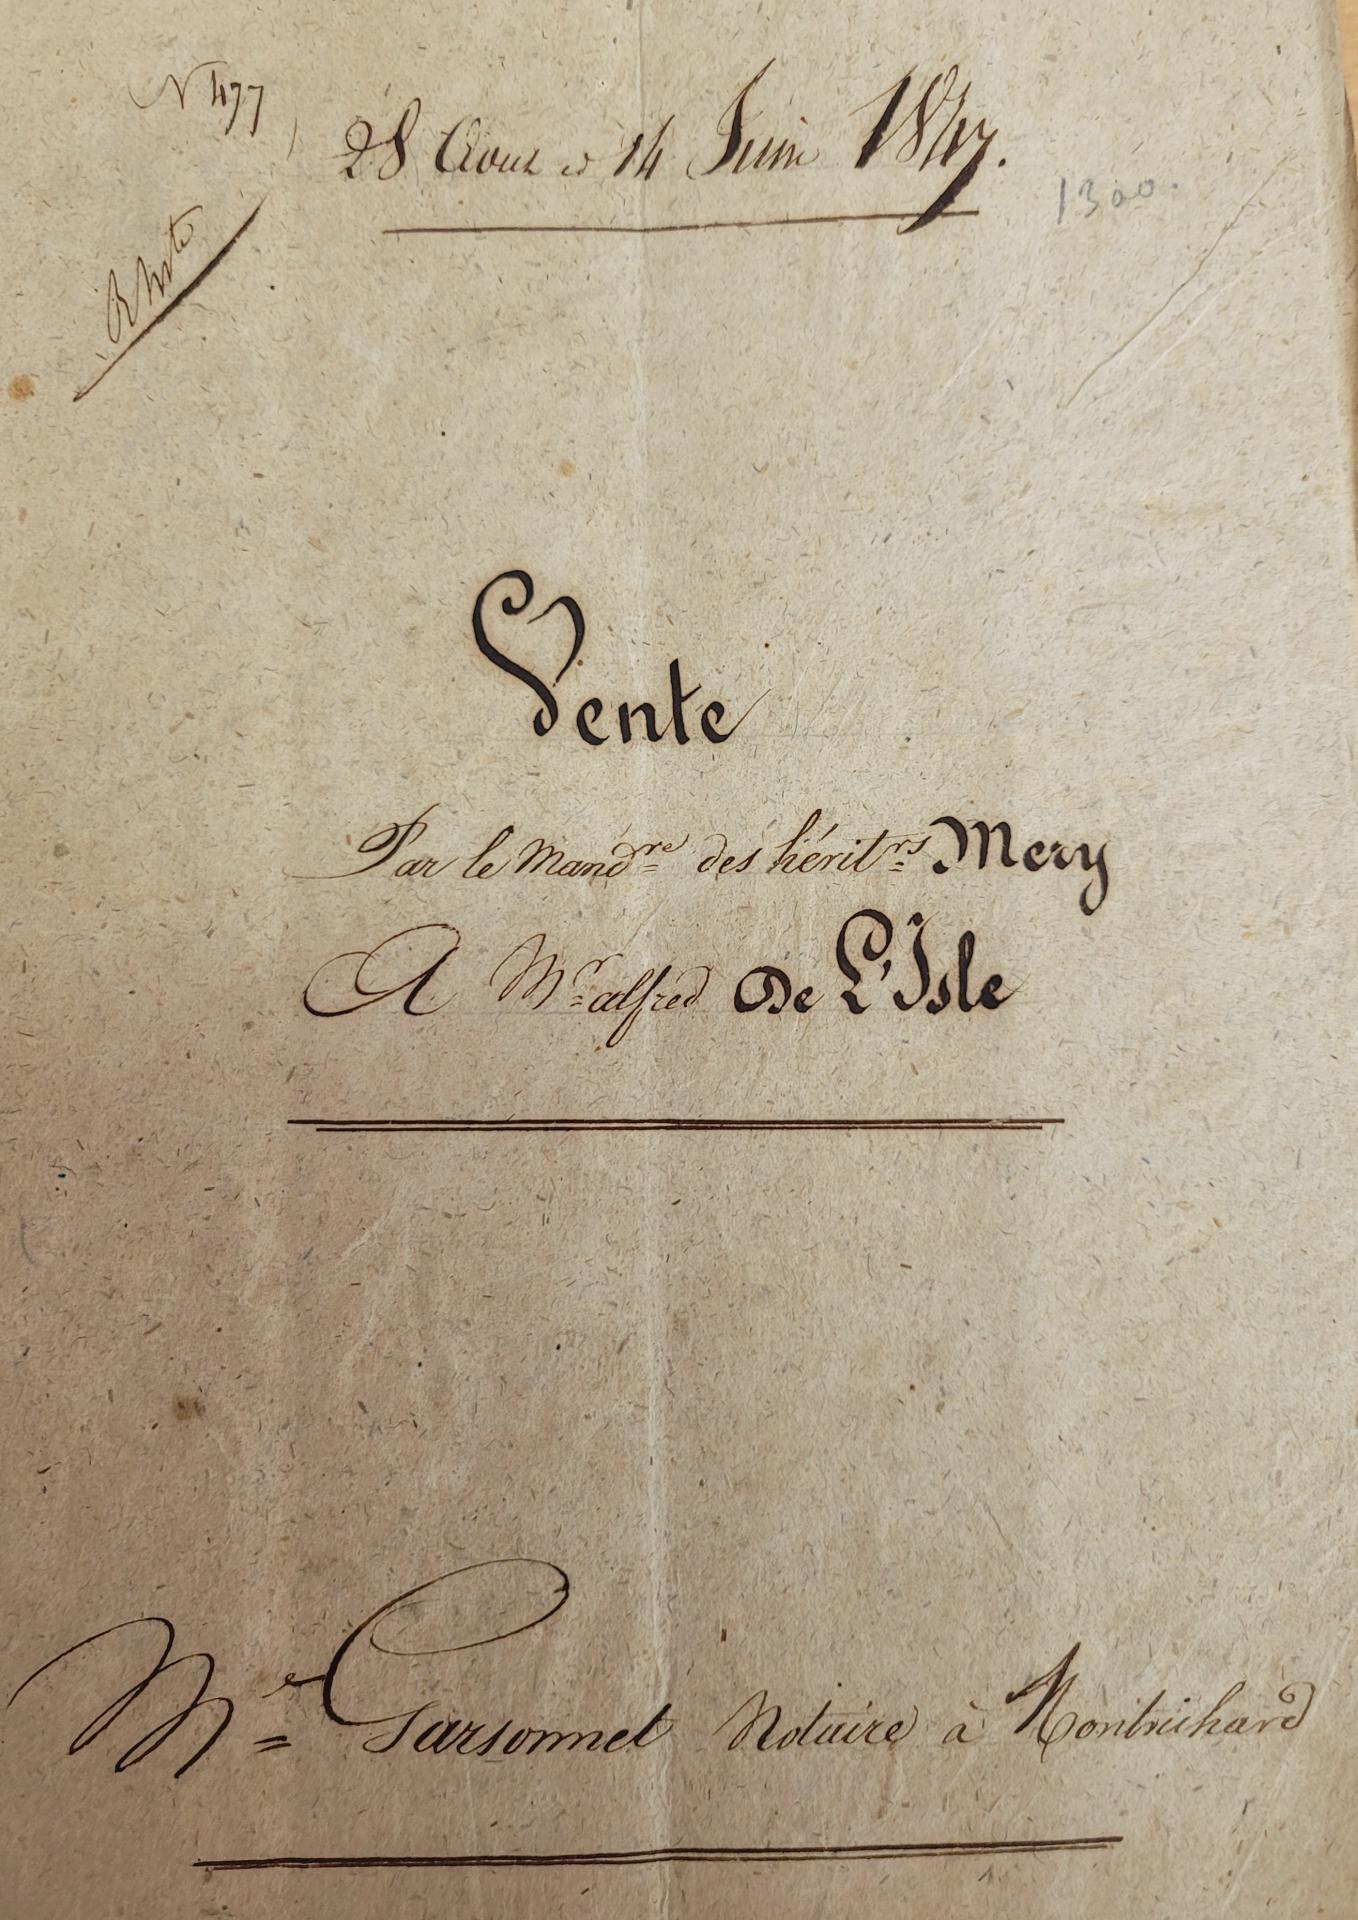 N 477
28 Aout et 14 Juin 1847.
1300.
Vente
Par le Mandre des héritrs Mery
A Mr alfred De L'Isle
Me Garsonnet Notaire à Montrichard